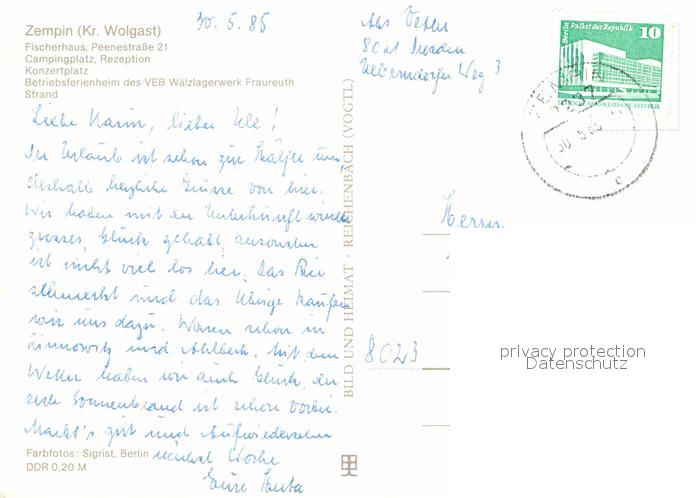 Zempin (Kr. Wolgast)
Fischerhaus, Peenestraße 21
Campingplatz, Rezeption
Konzertplatz
Betriebsferienheim des VEB Wälzlagerwerk Fraureuth
Strand
30. 5. 85
Liebe Karin, lieber Ulz!
Der Urlaub ist schon zur Hälfte um,
deshalb herzliche Grüsse von hier.
Wir haben mit der Unterkunft wieder
grosses Glück gehabt, ansonsten
ist nicht viel los hier. Das Bier
schmeckt und das Übrige kaufen
wir uns dazu. Waren schon in
Zinnowitz und Ahlbeck. Mit dem
Wetter haben wir auch Glück, der
erste Sonnenbrand ist schon vorbei.
Macht's gut und Aufwiedersehn
nächste Woche
Eure
Farbfotos: Sigrist, Berlin
DDR 0,20 M
BILD UND HEIMAT · REICHENBACH (VOGTL)
Abs.
80 Dresden
Weg 3
Berlin Palast der Republik
10
DEUTSCHE DEMOKRATISCHE REPUBLIK
ZEMPIN
30 5 85
c
Herrn
8023
privacy protection
Datenschutz